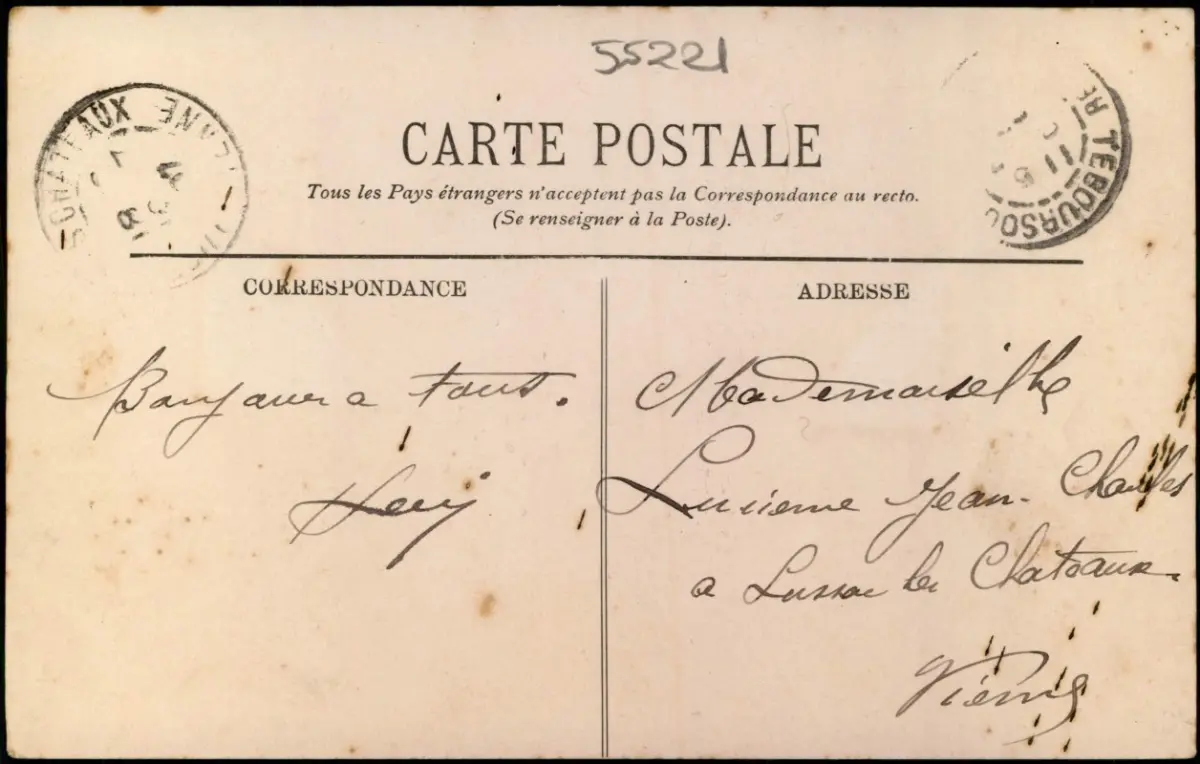 55221
CARTE POSTALE
Tous les Pays étrangers n'acceptent pas la Correspondance au recto.
(Se renseigner à la Poste).
CHATEAUX
TEBOURSOU
CORRESPONDANCE
ADRESSE
Bonjour a tous.
Mademoiselle
Lucienne Jean-Charles
a Lussac les Chateaux.
Vienne